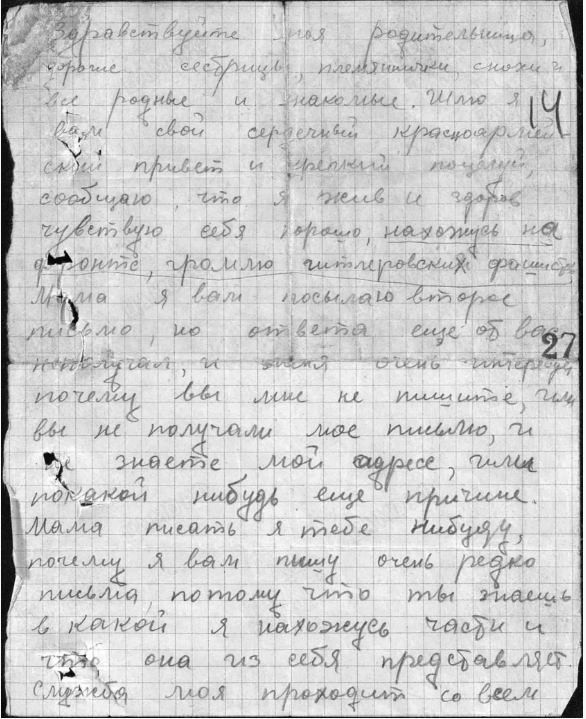 Здравствуйте моя родительница,
дорогие сестрицы, племянички, снохи и
все родные и знакомые. Шлю я
14
вам свой сердечный красноармей-
ский привет и крепкий поцелуй,
сообщаю, что я жив и здоров
чувствую себя хорошо, нахожусь на
фронте, громлю гитлеровских фашистов
Мама я вам посылаю второе
письмо, но ответа еще об вас
27
неполучал, и меня очень интересует
почему вы мне не пишите, или
вы не получали мое письмо, и
не знаете мой адресс, или
покакой нибудь еще причине.
Мама писать я тебе нибуду,
почему я вам пишу очень редко
письма, потому что ты знаешь
в какой я нахожусь части и
что она из себя представляет.
Служба моя проходит со всем